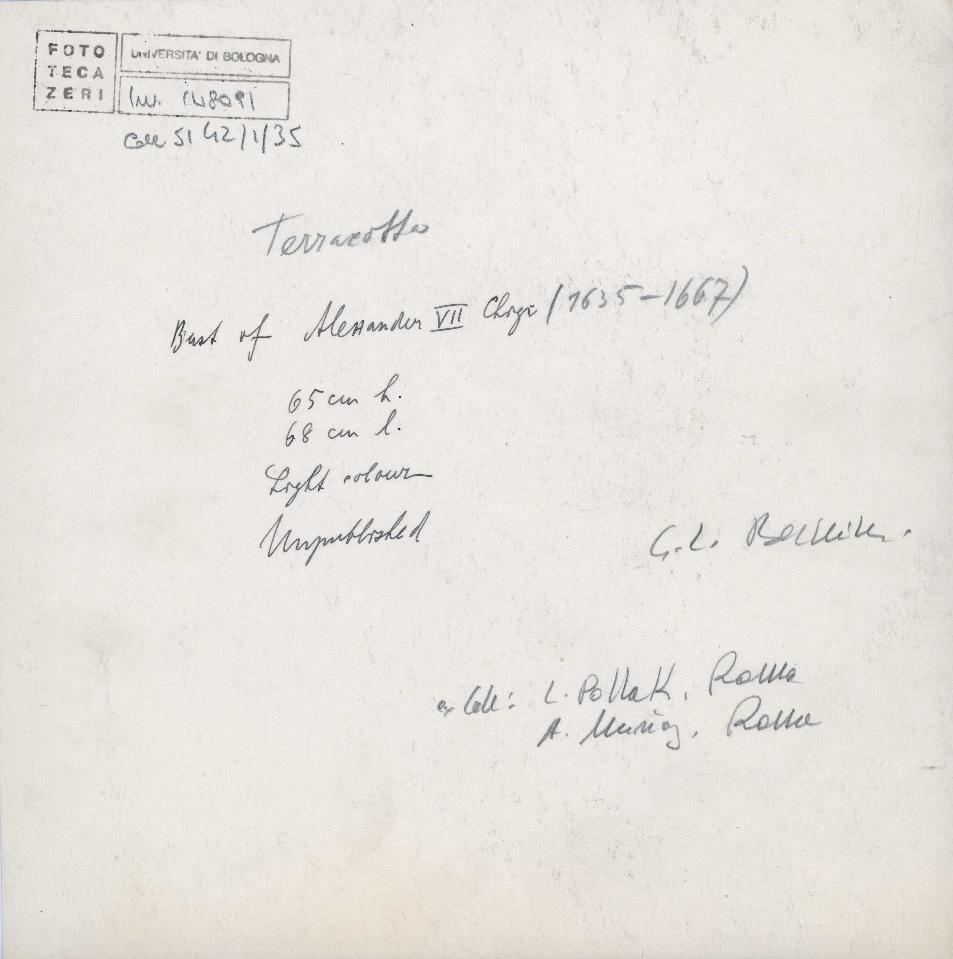 FOTO
TECA
ZERI
UNIVERSITA' DI BOLOGNA
Inv. 148091
Coll SI 42/1/35
Terracotta
Bust of Alessander VII Chigi (1635-1667)
65 cm h.
68 cm l.
Light colour
Unpublished
G.L. Bernini.
ex Coll: L. Pollak, Roma
A. Muñoz, Roma